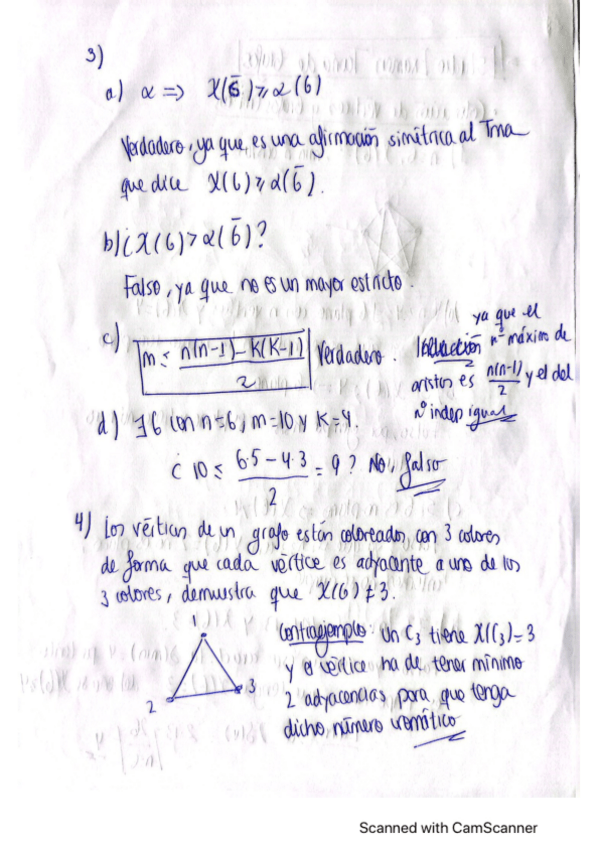 3)
a) α ⇒ X(G̅) ≥ α(G)
Verdadero, ya que es una afirmación simétrica al Tma
que dice X(G) ≥ α(G̅).
b) ¿X(G) > α(G̅)?
Falso, ya que no es un mayor estricto.
c) m ≤ n(n-1)-K(K-1) / 2 Verdadero. ya que el
nº máximo de
aristas es n(n-1)/2 y el del
nº indep igual
d) ∃G con n=6, m=10 y K=4.
¿10 ≤ 6·5-4·3 / 2 = 9? No, falso
4) Los vértices de un grafo están coloreados con 3 colores
de forma que cada vértice es adyacente a uno de los
3 colores, demuestra que X(G) ≠ 3.
Contraejemplo: Un C₃ tiene X(C₃)=3
y el vértice ha de tener mínimo
2 adyacencias para que tenga
dicho número cromático
1
2
3
Scanned with CamScanner